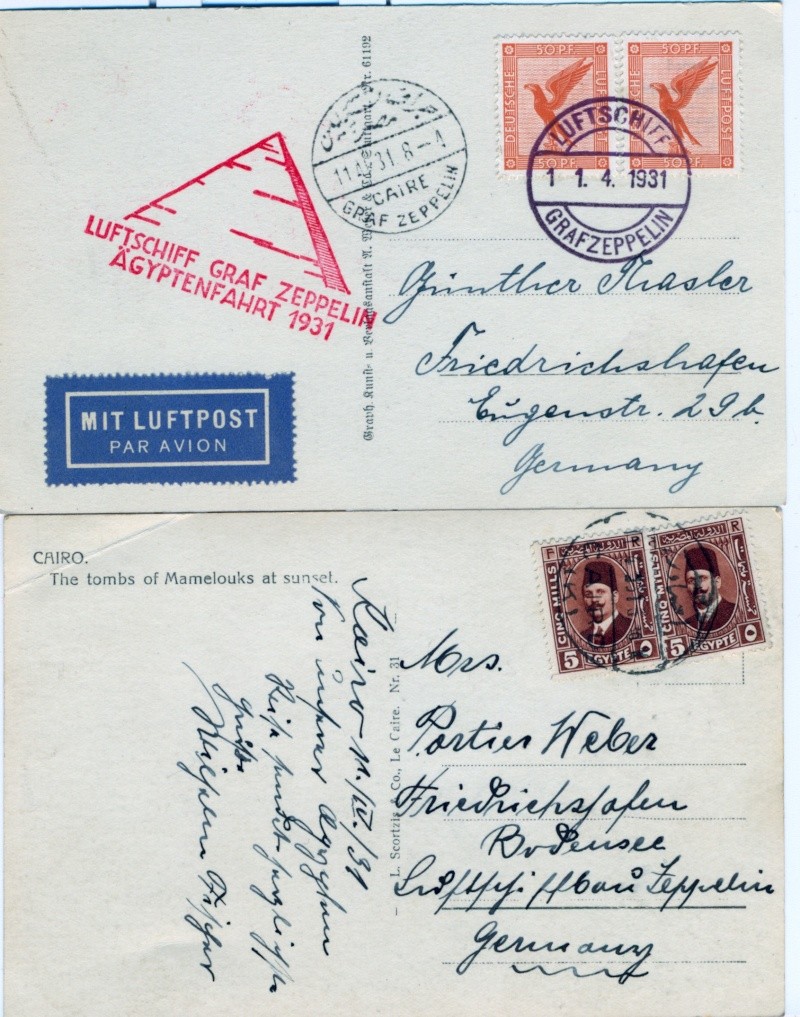 50 PF. 50 PF.
DEUTSCHE LUFTPOST
50 PF. 50 PF.
LUFTSCHIFF
1 1. 4. 1931
GRAFZEPPELIN
31 8-4
CAIRE
GRAF ZEPPELIN
LUFTSCHIFF GRAF ZEPPELIN
ÄGYPTENFAHRT 1931
MIT LUFTPOST
PAR AVION
Graph. Kunst- u. Nr. 61192
Günther
Friedrichshafen
Eugenstr. 29b.
Germany
CAIRO.
The tombs of Mamelouks at sunset.
CINQ MILLS
5 EGYPTE ٥
CINQ MILLS
5 EGYPTE ٥
L. Scortzis & Co., Le Caire. Nr. 31
Kairo 11./IV./31
Von unserer Ägypten
Reise sendet herzliche
Grüße
Wilhelm Fischer
Mrs.
Portier Weber
Friedrichshafen
Bodensee
Luftschiffbau Zeppelin
Germany